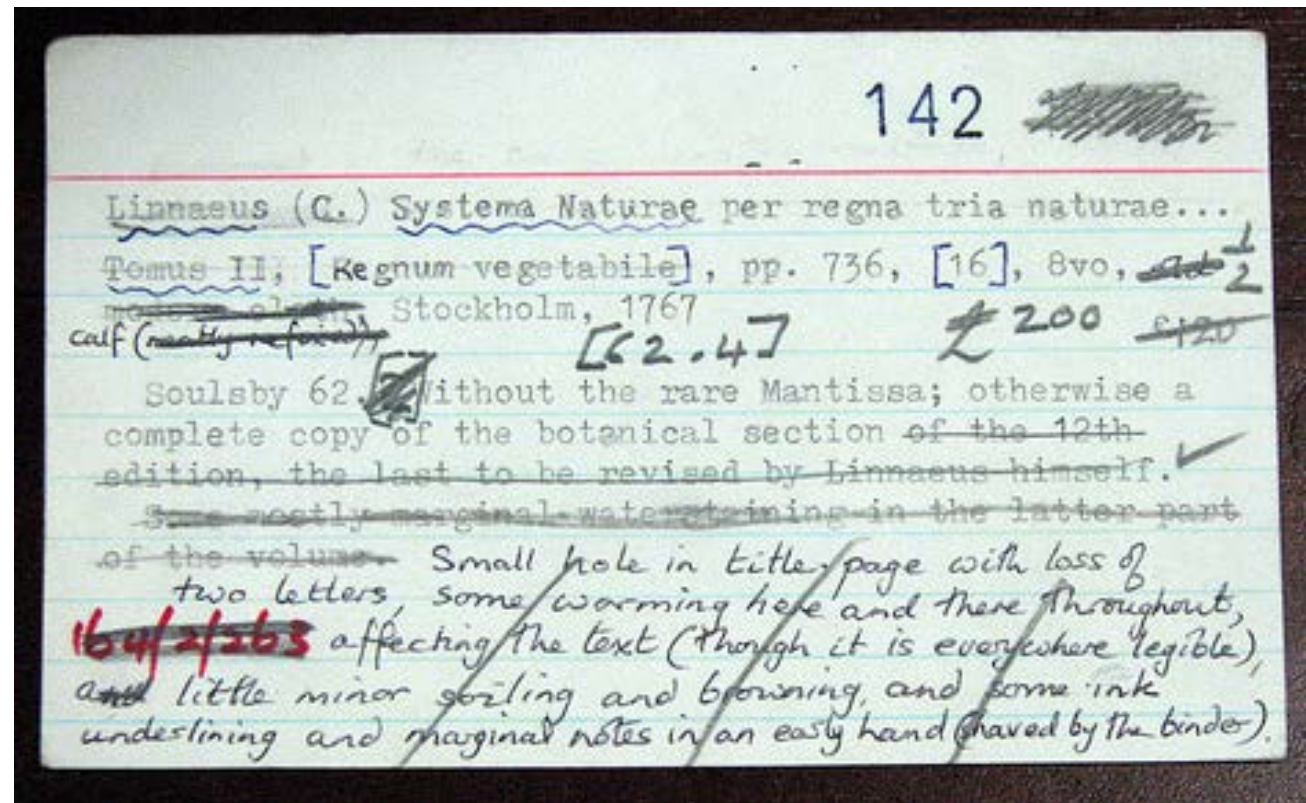 142
Linnaeus (C.) Systema Naturae per regna tria naturae...
Tomus II, [Regnum vegetabile], pp. 736, [16], 8vo, 1/2
Stockholm, 1767
calf (neatly refixed), [62.4] £200 £120
Soulsby 62. Without the rare Mantissa; otherwise a
complete copy of the botanical section of the 12th
edition, the last to be revised by Linnaeus himself. ✓
Some mostly marginal waterstaining in the latter part
of the volume. Small hole in title-page with loss of
two letters, some worming here and there throughout,
164/2/263 affecting the text (though it is everywhere legible),
and little minor soiling and browning, and some ink
underlining and marginal notes in an early hand (shaved by the binder).